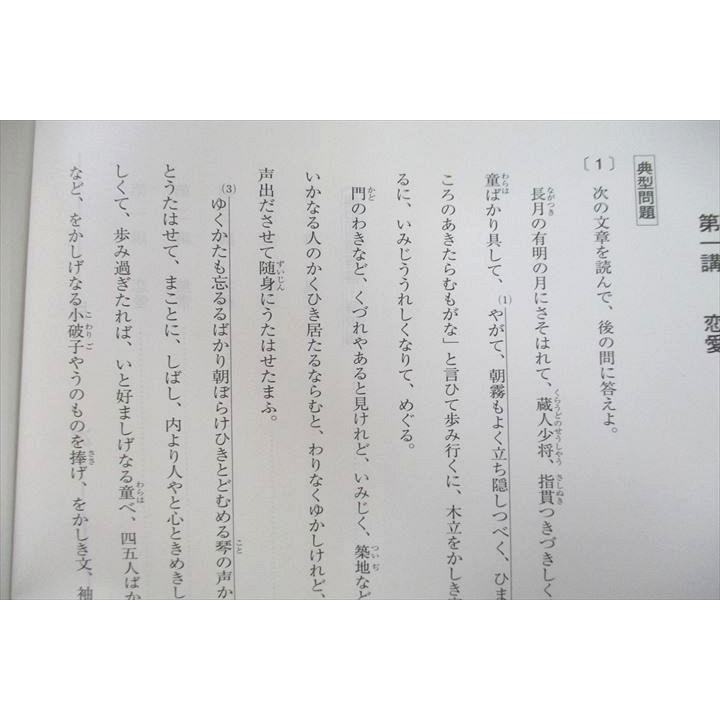 第一講　恋愛
典型問題
〔1〕 次の文章を読んで、後の問に答えよ。
長月の有明の月にさそはれて、蔵人少将、指貫つきづきしく
童ばかり具して、(1)やがて、朝霧もよく立ち隠しつべく、ひま
ころのあきたらむもがな」と言ひて歩み行くに、木立をかしき
るに、いみじううれしくなりて、めぐる。
門のわきなど、くづれやあると見けれど、いみじく、築地など
いかなる人のかくひき居たるならむと、わりなくゆかしけれど、
声出ださせて随身にうたはせたまふ。
(3)ゆくかたも忘るるばかり朝ぼらけひきとどむめる琴の声か
とうたはせて、まことに、しばし、内より人やと心ときめきし
しくて、歩み過ぎたれば、いと好ましげなる童べ、四五人ばか
など、をかしげなる小破子やうのものを捧げ、をかしき文、袖